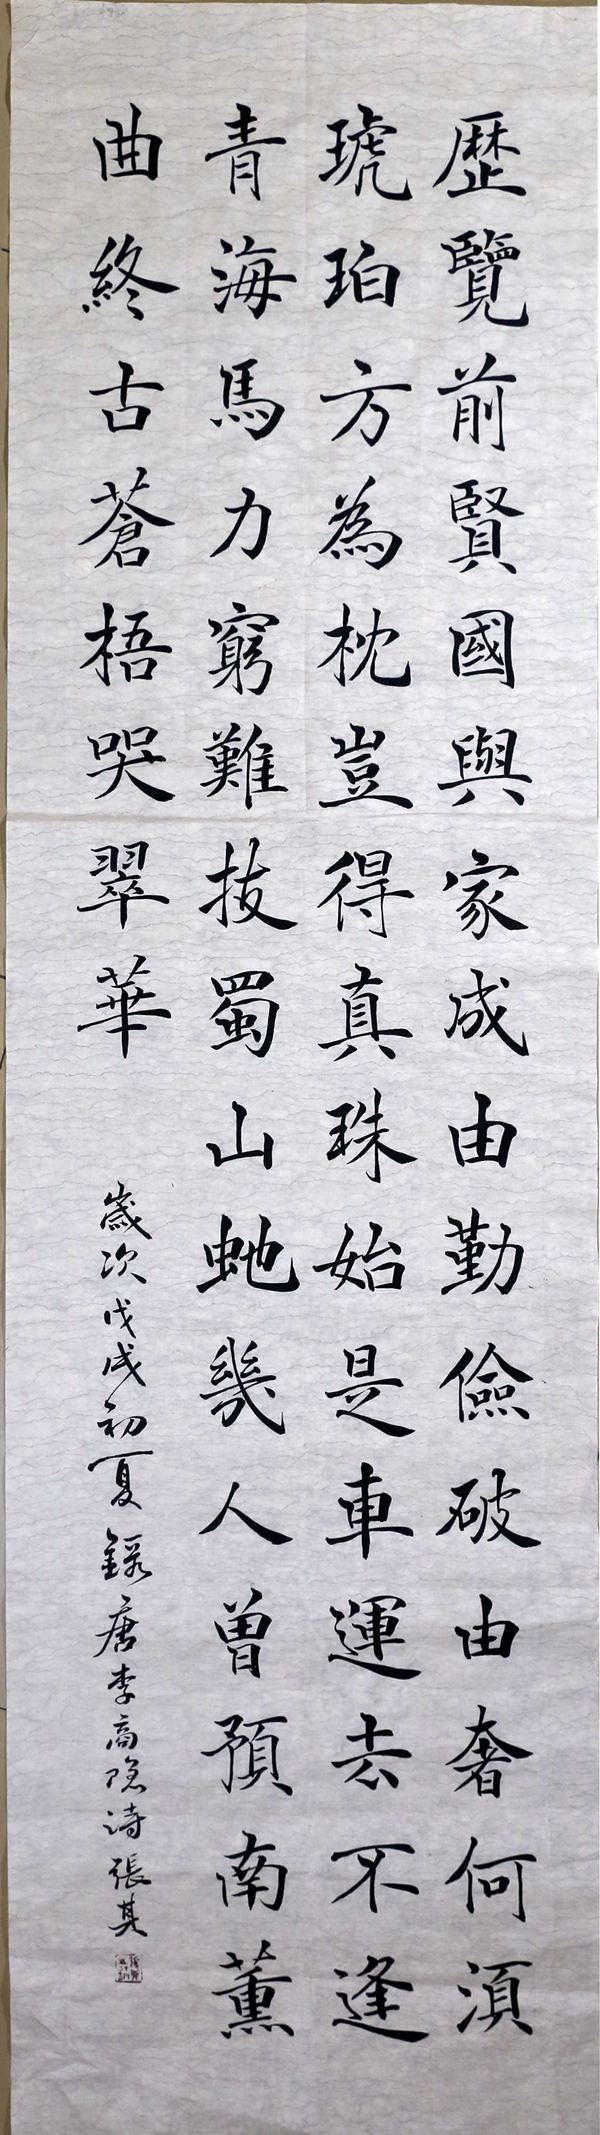 歷覽前賢國與家成由勤儉破由奢何須
琥珀方為枕豈得真珠始是車運去不逢
青海馬力窮難拔蜀山虵幾人曾預南薰
曲終古蒼梧哭翠華
歲次戊戌初夏錄唐李商隱詩張其